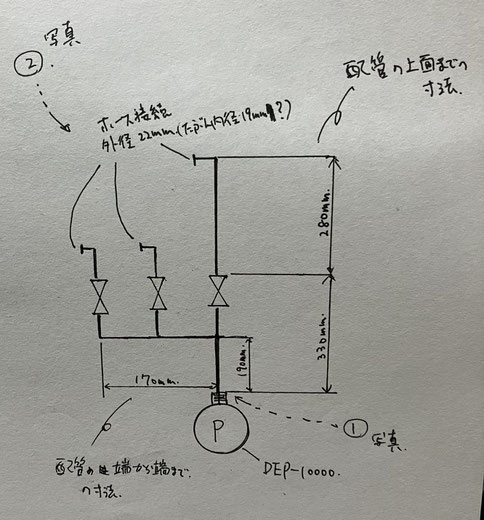 写真
②
配管の上面までの
寸法.
ホース接続
外径22mm.(たぶん内径19mm?)
280mm.
330mm.
190mm.
170mm.
P
①
写真.
DEP-10000.
配管の端から端まで.
の寸法.